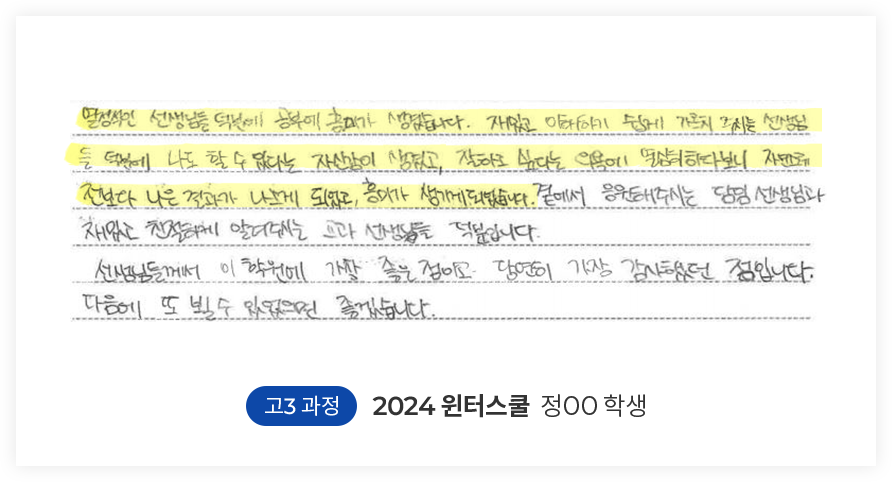 열정적인 선생님들 덕분에 공부에 흥미가 생겼습니다. 재밌고 이해하기 쉽게 가르쳐 주시는 선생님
들 덕분에 나도 할 수 있다는 자신감이 생겼고, 잘하고 싶다는 의욕에 열심히하다보니 자연스레
전보다 나은 결과가 나오게 되었고, 흥미가 생기게되었습니다. 곁에서 응원해주시는 담임 선생님과
재밌고 친절하게 알려주시는 교과 선생님들 덕분입니다.
선생님들께서 이 학원에 가장 좋은 점이고 당연히 가장 감사했던 점입니다.
다음에 또 뵐 수 있었으면 좋겠습니다.
고3 과정 2024 윈터스쿨 정OO 학생